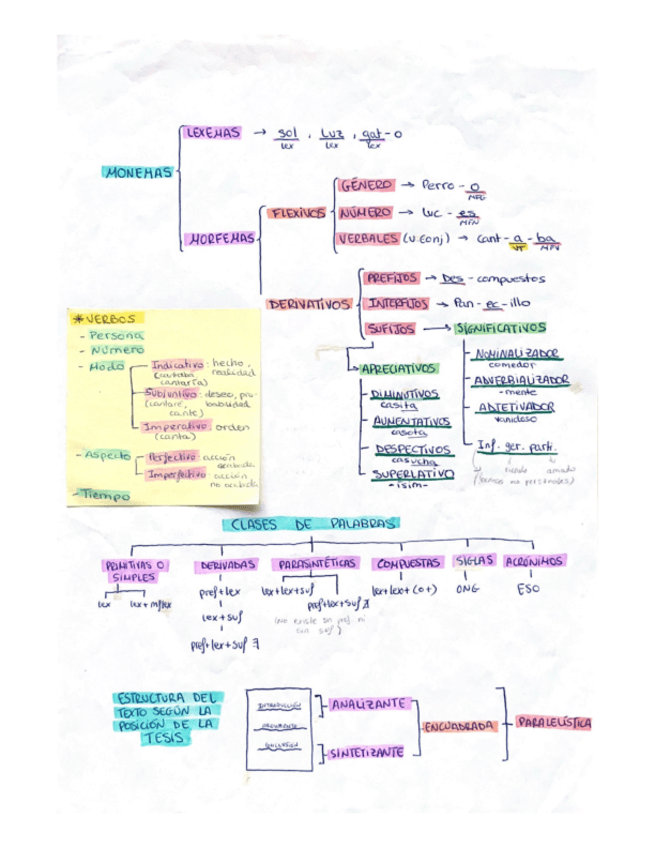 LEXEMAS → sol , Luz , gat - o
lex lex lex
MONEMAS
MORFEMAS
FLEXIVOS
GÉNERO → Perro - o
MFG
NÚMERO → Luc - es
MFN
VERBALES (v.conj) → cant - a - ba
VT MFV
DERIVATIVOS
PREFIJOS → Des - compuestos
INTERFIJOS → Pan - ec - illo
SUFIJOS → SIGNIFICATIVOS
- NOMINALIZADOR
comedor
- ADVERBIALIZADOR
- mente
- ADJETIVADOR
vanidoso
- Inf. ger. parti.
APRECIATIVOS
- DIMINUTIVOS
casita
- AUMENTATIVOS
casota
- DESPECTIVOS
casucha
- SUPERLATIVO
- isim -
* VERBOS
- Persona
- Número
- Modo
Indicativo: hecho,
realidad
cantaría)
Subjuntivo: deseo, pro-
(cantare, babilidad
cante)
Imperativo orden
(canta)
- Aspecto
Perfectivo: acción
Imperfectivo: acción
no acabada
- Tiempo
CLASES DE PALABRAS
PRIMITIVAS O
SIMPLES
lex lex + mflex
DERIVADAS
pref + lex
lex + suf
pref + lex + suf ∃
PARASINTÉTICAS
lex + lex + suf
pref + lex + suf ∄
(No existe sin pref. ni
sin suf)
COMPUESTAS
lex + lex + (o +)
SIGLAS
ONG
ACRÓNIMOS
ESO
ESTRUCTURA DEL
TEXTO SEGÚN LA
POSICIÓN DE LA
TESIS
INTRODUCCIÓN
ANALIZANTE
SINTETIZANTE
ENCUADRADA
PARALELÍSTICA